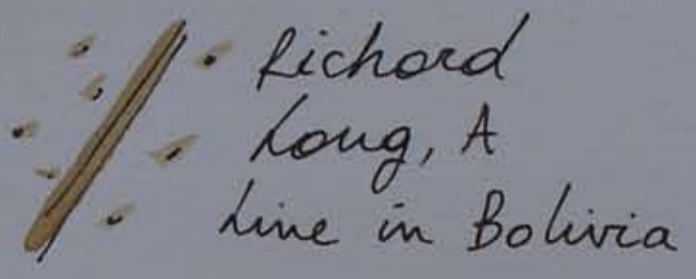 Richard
Long, A
Line in Bolivia